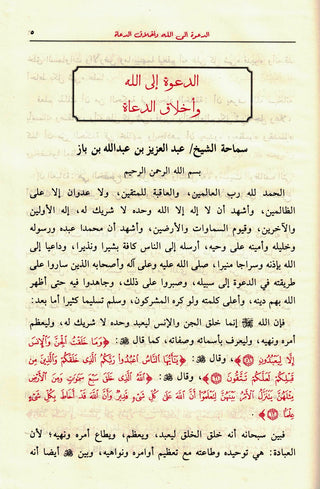 الدعوة إلى الله وأخلاق الدعاة
٥
الدعوة إلى الله
وأخلاق الدعاة
سماحة الشيخ/ عبد العزيز بن عبدالله بن باز
بسم الله الرحمن الرحيم
الحمد لله رب العالمين، والعاقبة للمتقين، ولا عدوان إلا على
الظالمين، وأشهد أن لا إله إلا الله وحده لا شريك له، إله الأولين
والآخرين، وقيوم السماوات والأرضين، وأشهد أن محمدا عبده ورسوله
وخليله وأمينه على وحيه، أرسله إلى الناس كافة بشيرا ونذيرا، وداعيا إلى
الله بإذنه وسراجا منيرا، صلى الله عليه وعلى آله وأصحابه الذين ساروا على
طريقته في الدعوة إلى سبيله، وصبروا على ذلك، وجاهدوا فيه حتى أظهر
الله بهم دينه، وأعلى كلمته ولو كره المشركون، وسلم تسليما كثيرا أما بعد:
فإن الله ﷻ إنما خلق الجن والإنس ليعبد وحده لا شريك له، وليعظم
أمره ونهيه، وليعرف بأسمائه وصفاته، كما قال ﷻ: ﴿وَمَا خَلَقْتُ الْجِنَّ وَالْإِنسَ
إِلَّا لِيَعْبُدُونِ ۝﴾، وقال ﷻ: ﴿يَا أَيُّهَا النَّاسُ اعْبُدُوا رَبَّكُمُ الَّذِي خَلَقَكُمْ وَالَّذِينَ مِن
قَبْلِكُمْ لَعَلَّكُمْ تَتَّقُونَ ۝﴾، وقال ﷻ: ﴿اللَّهُ الَّذِي خَلَقَ سَبْعَ سَمَاوَاتٍ وَمِنَ الْأَرْضِ
مِثْلَهُنَّ يَتَنَزَّلُ الْأَمْرُ بَيْنَهُنَّ لِتَعْلَمُوا أَنَّ اللَّهَ عَلَى كُلِّ شَيْءٍ قَدِيرٌ وَأَنَّ اللَّهَ قَدْ أَحَاطَ بِكُلِّ شَيْءٍ
عِلْمًا ۝﴾.
فبين سبحانه أنه خلق الخلق ليعبد، ويعظم، ويطاع أمره ونهيه؛ لأن
العبادة: هي توحيده وطاعته مع تعظيم أوامره ونواهيه، وبين ﷻ أيضا أنه